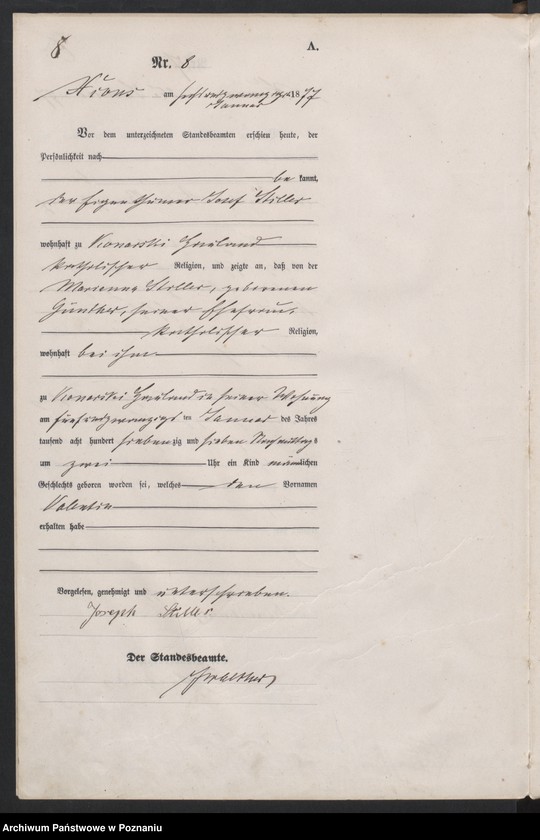 8
A.
Nr. 8
Xions am sechsundzwanzigsten 1877
Januar
Vor dem unterzeichneten Standesbeamten erschien heute, der
Persönlichkeit nach
be kannt,
der Eigenthümer Josef Stiller
wohnhaft zu Konarski Hauland
katholischer Religion, und zeigte an, daß von der
Marianna Stiller, geborenen
Günther, seiner Ehefrau,
katholischer Religion,
wohnhaft bei ihm
zu Konarski Hauland in seiner Wohnung
am fünfundzwanzigsten Januar des Jahres
tausend acht hundert siebenzig und sieben Nachmittags
um zwei Uhr ein Kind männlichen
Geschlechts geboren worden sei, welches den Vornamen
Valentin
erhalten habe
Vorgelesen, genehmigt und unterschrieben.
Joseph Stiller
Der Standesbeamte.
Archiwum Państwowe w Poznaniu